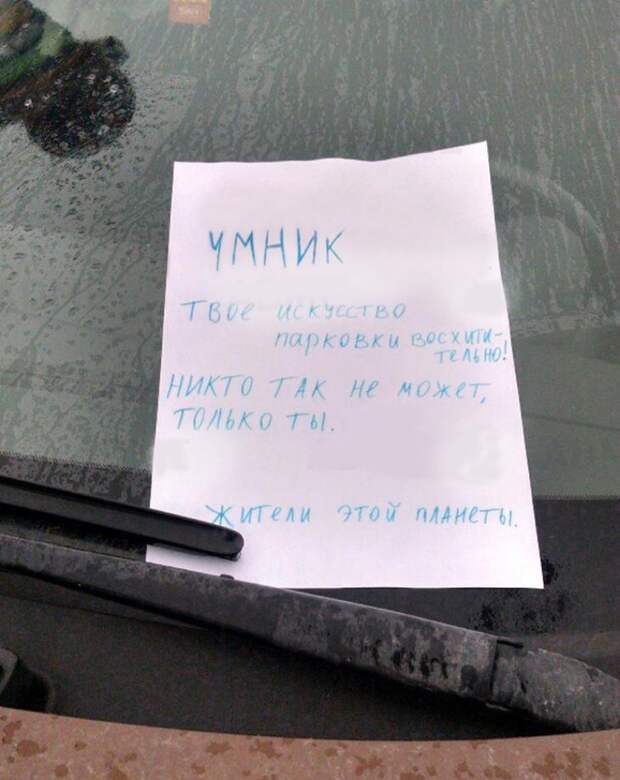 УМНИК
ТВОЕ ИСКУССТВО
ПАРКОВКИ ВОСХИТИ-
ТЕЛЬНО!
НИКТО ТАК НЕ МОЖЕТ,
ТОЛЬКО ТЫ.
ЖИТЕЛИ ЭТОЙ ПЛАНЕТЫ.